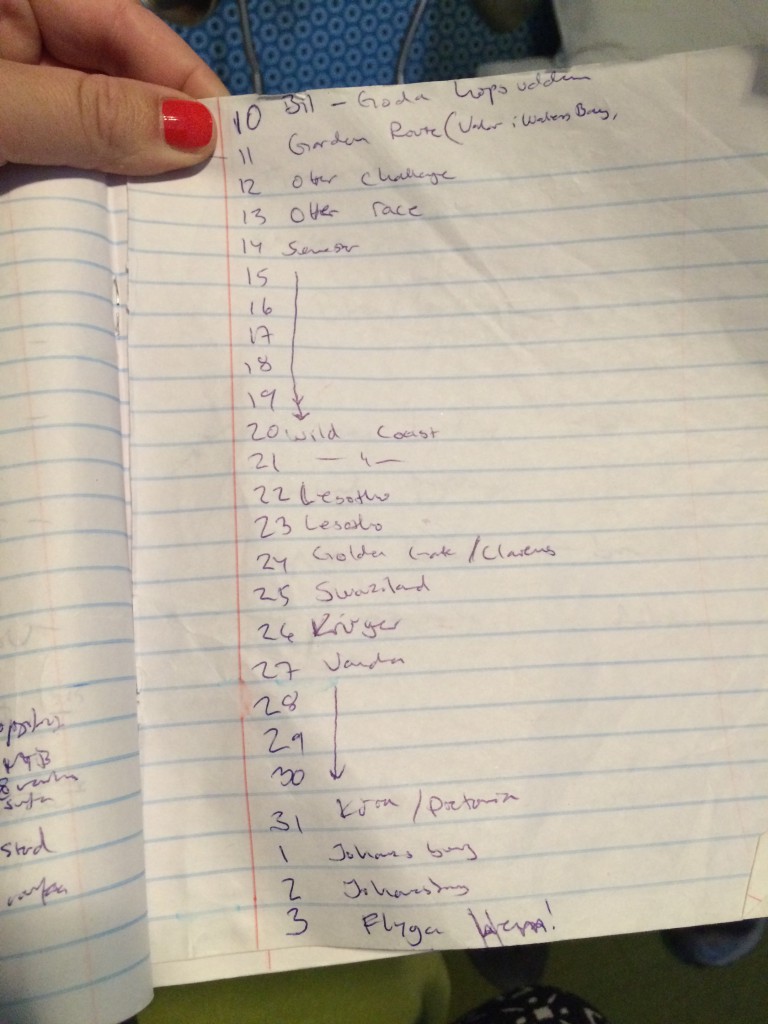 10 Bil - Goda hopsudden
11 Garden Route (Valar i Walkers Bay,
12 Otter Challenge
13 Otter race
14 Semester
15
16
17
18
19
20 Wild Coast
21 — " —
22 Lesotho
23 Lesotho
24 Golden Gate / Clarens
25 Swaziland
26 Krüger
27 Vandra
28
29
30
31 Köra / Pretoria
1 Johannesburg
2 Johannesburg
3 Flyga Hem!